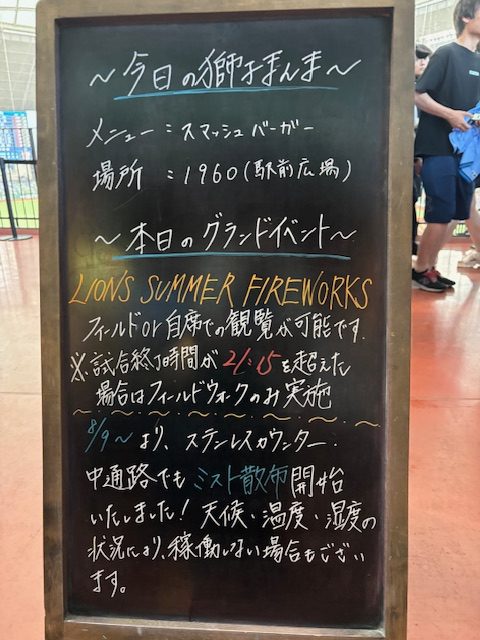 ～今日の獅子まんま～
メニュー：スマッシュバーガー
場所 ：1960(駅前広場)
～本日のグランドイベント～
LIONS SUMMER FIREWORKS
フィールドor自席での観覧が可能です.
※.試合終了時間が21:15を超えた
場合はフィールドウォークのみ実施
8/9～より、ステンレスカウンター.
中通路でもミスト散布開始
いたしました！天候・温度・湿度の
状況により、稼働しない場合もござい
ます。